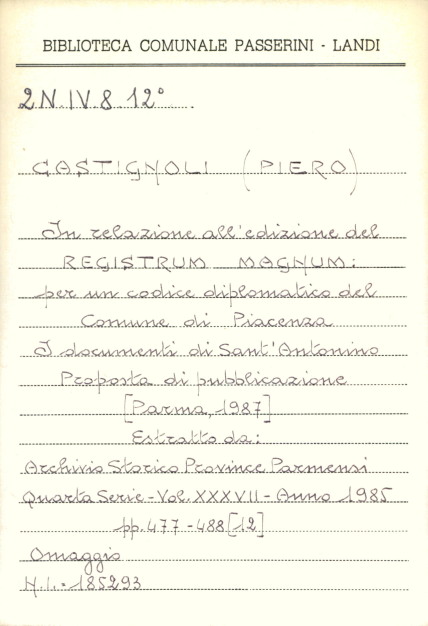 BIBLIOTECA COMUNALE PASSERINI - LANDI
2N.IV.8.12°
CASTIGNOLI (PIERO)
In relazione all'edizione del
REGISTRUM MAGNUM:
per un codice diplomatico del
Comune di Piacenza
I documenti di Sant'Antonino
Proposta di pubblicazione
[Parma, 1987]
Estratto da:
Archivio Storico Province Parmensi
Quarta Serie - Vol. XXXVII - Anno 1985
pp. 477 - 488 [12]
Omaggio
N.I. = 185293